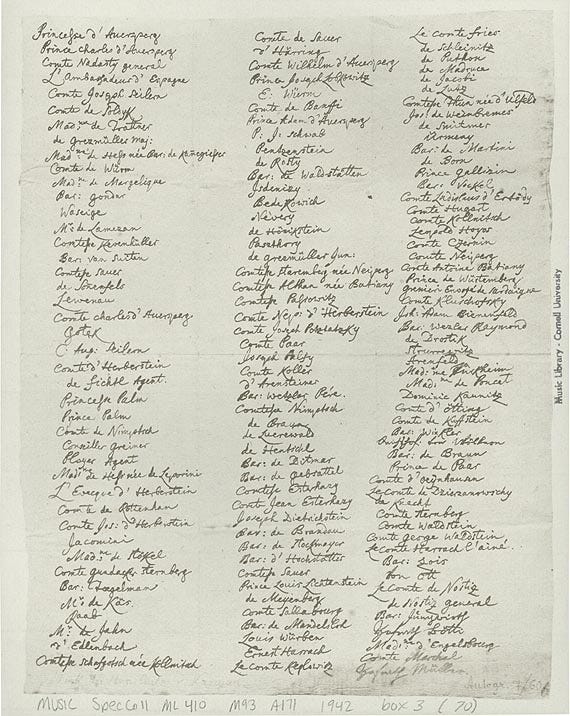 Princesse d'Auersperg
Prince Charles d'Auersperg
Comte Nadasty general
L'Ambassadeur d'Espagne
Comte Joseph Seilern
Comte de
Mad:me de Trattner
de grezmüller maj:
Mad:me de Hess née Bar: de
Comte de Würm
Mad:me de Margelique
Bar: gondar
Waseige
Mr: de Lamezan
Comtesse Kevenhüller
Bar: van Suiten
Comtesse Sauer
de Sonnfels
Lewenau
Comte charles d'Auersperg
Gotek
C. Aug: Seilern
Comte d'Herberstein
de Fichtl Agent.
Princesse Palm
Prince Palm
Comte de Nimptsch
Conseiller greiner
Ployer Agent
Mad:me de Hess née de Leporini
L'Eveque d'Herberstein
Comte de Rottenhan
Comte Jos: d'Herberstein
Jacomini
Mad:me de Stökel
Comte gundacker Sternberg
Bar:
Mr: de Käs
Raab
Mr: de Jahn
d'Edlenbach
Comtesse Schafgotsch née Kollnitsch
Comte de Sauer
d'Häring
Comte Wilhelm d'Auersperg
Prince Joseph Lobkowitz
E: Würm
Comte de Banffi
Prince Adam d'Auersperg
P: J: Schwab
Pentzenstein
de Rosty
Bar: de Waldstätten
Isdenizy
Bedekowich
Nevery
de Hönikstein
Pasthory
de greezmüller Jun:
Comtesse Sternberg née Neiperg
Comtesse Althan née Batiany
Comtesse Passowitz
Comte Nep: d'Herberstein
Comte Joseph Potztatzky
Comte Paar
Joseph Palfy
Comte Koller
d'Arensteiner
Bar: Wetzlar Père.
Comtesse Nimptsch
de Braun
de Luerewald
de Hentschl
Bar: de Ditmar
Bar: de Gebsattel
Comtesse Esterhazy
Comte Jean Esterhazy
Joseph Dietrichstein
Bar: de Brandau
Bar: de Hochmayer
Bar: d'Hochstätter
Comtesse Sauer
Prince Louis Lichtenstein
de Meyenberg
Comte Sallabourg
Bar: de Mandelslch
Louis Würben
Ernest Harrach
Le comte Keglewitz
Le comte fries
de Schleinitz
de Puthon
de Madruce
de Jacobi
de Lutz
Comtesse Thun née d'Ulfeld
Jos: de Weinbremer
de Suitmer
ürmeny
Bar: de Martini
de Born
Prince gallizin
Bar: Vockel
Comte Ladislaus d'Erdödy
Comte Hugart
Comte Kollnitsch
Leopold Hoyos
Comte Czernin
Comte Neiperg
Comte Antoine Batiany
Prince de Würtemberg
grenieri Envoyé de Sardaigne
Comte Kluschofsky
Joh: Adam Bienenfeld
Bar: Wezlar Raymond
de Drostik
Arenfeld
Mad:me Türkheim
Mad:me de Poncet
Dominic Kaunitz
Comte d'Otting
Comte de Kuffstein
Bar: Winkler
Bar: de Braun
Prince de Paar
Comte d'Oeynhausen
Le comte de Dzierzanowschy
de Knecht
Comte Sternberg
Comte Waldstein
Comte george Waldstein
Le comte Harrach l'ainé.
Bar: Gois
von Ott
Le Comte de Nostiz
de Nostiz general
Bar: Jungwirth
Mad:me d'Engelsbourg
Comte Marchal
Müller
Music Library - Cornell University
MUSIC SPEC COLL ML 410 M93 A171 1942 box 3 (70)